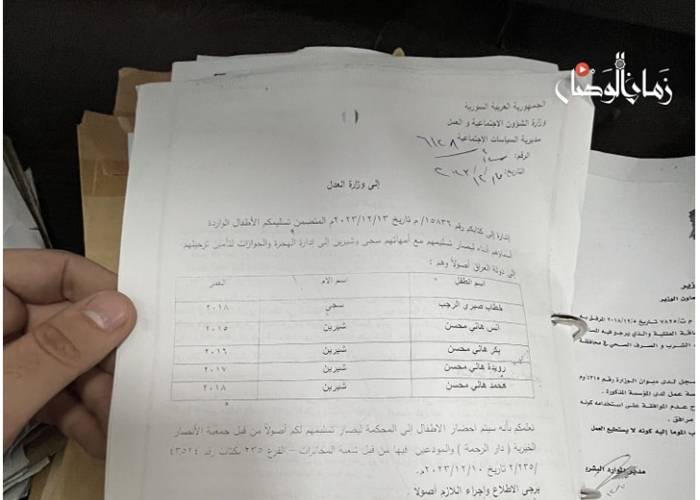 زمان الوصل
الجمهورية العربية السورية
وزارة الشؤون الاجتماعية و العمل
مديرية السياسات الاجتماعية
الرقم:
التاريخ:
إلى وزارة العدل
إشارة إلى كتابكم رقم ١٥٨٣٦/ م تاريخ ٢٠٢٣/١٢/١٣م المتضمن تسليمكم الأطفال الواردة
أسماؤهم أدناه ليصار تسليمهم مع أمهاتهم سجى وشيرين إلى إدارة الهجرة والجوازات لتأمين ترحيلهم
إلى دولة العراق أصولاً وهم :
اسم الطفل اسم الأم العمر
خطاب صبري الرجب سجى ٢٠١٨
انس هاني محسن شيرين ٢٠١٥
بكر هاني محسن شيرين ٢٠١٦
رويدة هاني محسن شيرين ٢٠١٧
محمد هاني محسن شيرين ٢٠١٨
نعلمكم بأنه سيتم احضار الاطفال إلى المحكمة ليصار تسليمهم لكم أصولاً من قبل جمعية الأنصار
الخيرية ( دار الرحمة ) والمودعين فيها من قبل شعبة المخابرات – الفرع ٢٣٥ بكتاب رقم ٤٣٥٢٤
/٢/٢٣٥ تاريخ ٢٠٢٣/١٢/١٠م.
يرجى الاطلاع واجراء اللازم أصولا .
زير
عاون الوزير
تاريخ ٢٠١٨/١٢/٥
الشرب و الصرف الصحي في محافظة
سجل لدى ديوان الوزارة رقم
صة عمل لدى المؤسسة المذكورة .
ح عدم الموافقة على استخدامه كونه
مرافق .
الموما إليه كونه لا يستطيع العمل
مدير الموارد البشرية